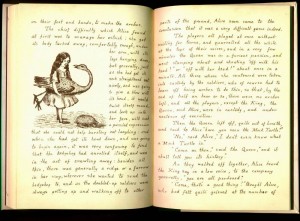 on their feet and hands, to make the arches.
The chief difficulty which Alice found
at first was to manage her ostrich: she got
its body tucked away, comfortably enough, under
her arm, with its
legs hanging down,
but generally, just
as she had got its
neck straightened out
nicely, and was going
to give a blow with
its head, it would
twist itself round,
and look up into
her face, with such
a puzzled expression
that she could not help bursting out laughing: and
when she had got its head down, and was going
to begin again, it was very confusing to find
that the hedgehog had unrolled itself, and was
in the act of crawling away: besides all
this, there was generally a ridge or a furrow
in her way, wherever she wanted to send the
hedgehog to, and as the doubled-up soldiers were
always getting up and walking off to other
parts of the ground, Alice soon came to the
conclusion that it was a very difficult game indeed.
The players all played at once without
waiting for turns, and quarrelled all the while
at the tops of their voices, and in a very few
minutes the Queen was in a furious passion, and
went stamping about and shouting "off with his
head!" or "off with her head!" about once in a
minute. All those whom she sentenced were taken
into custody by the soldiers, who of course had to
leave off being arches to do this, so that by the
end of half an hour or so, there were no arches
left, and all the players, except the King, the
Queen, and Alice, were in custody, and under
sentence of execution.
Then the Queen left off, quite out of breath,
and said to Alice "have you seen the Mock Turtle?"
"No," said Alice, "I don't even know what
a Mock Turtle is."
"Come on then," said the Queen, "and it
shall tell you its history."
As they walked off together, Alice heard
the King say in a low voice, to the company
generally, "you are all pardoned."
"Come, that's a good thing!" thought Alice,
who had felt quite grieved at the number of